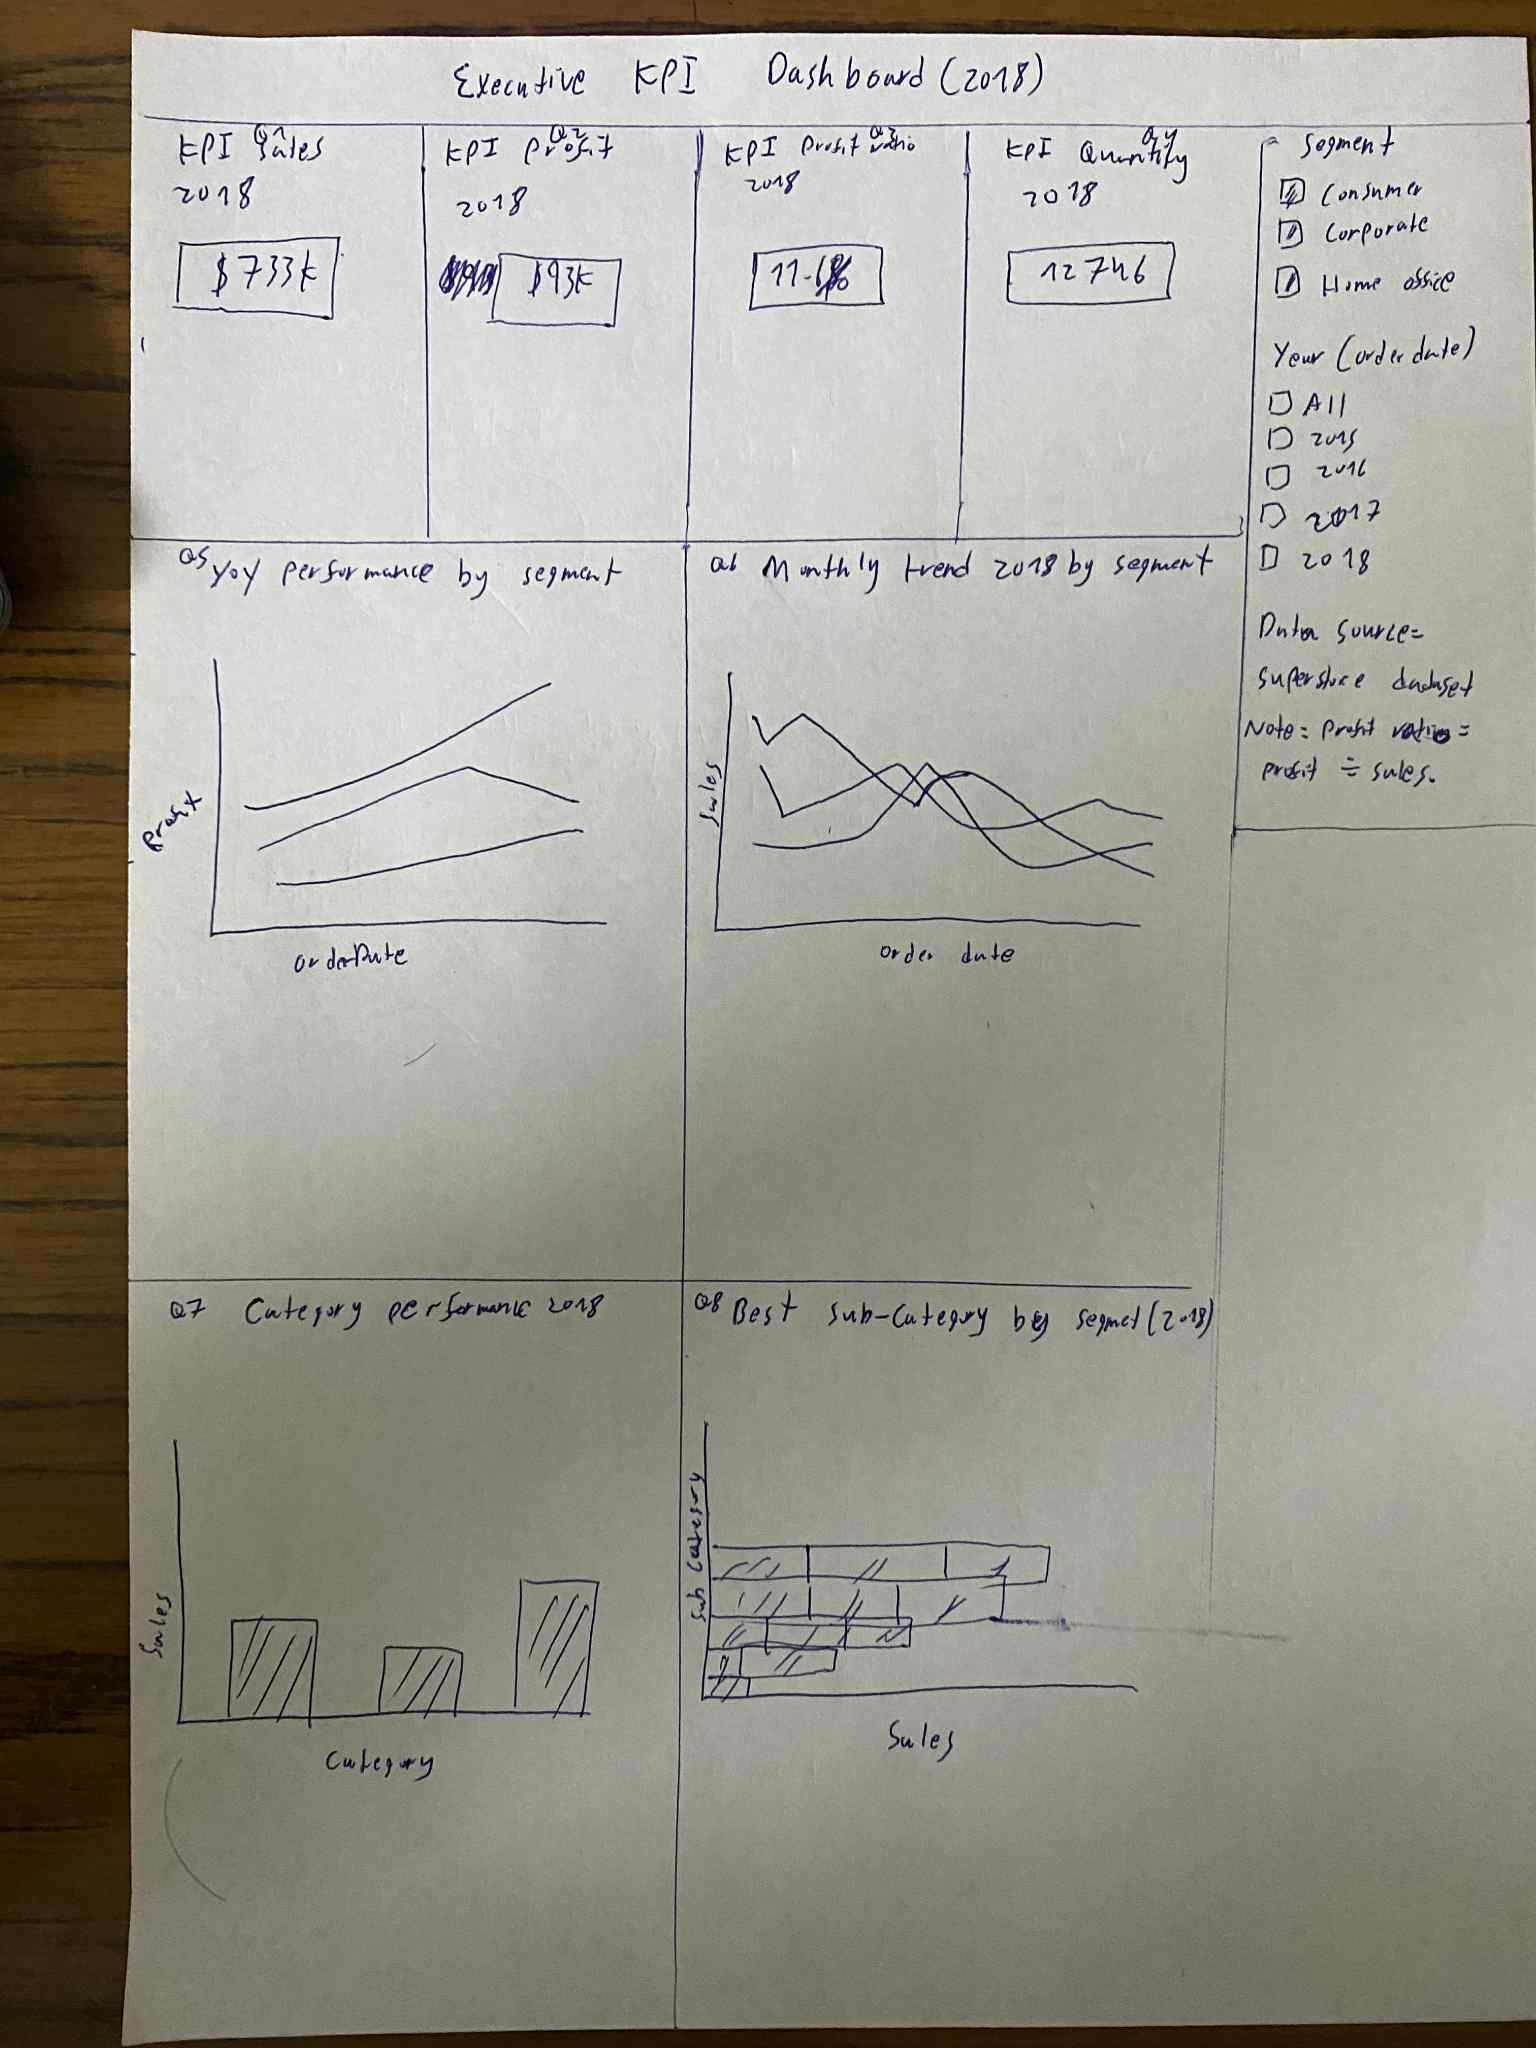 Executive KPI Dashboard (2018)
Q1
KPI Sales
2018
$733k
Q2
KPI Profit
2018
$93k
Q3
KPI Profit ratio
2018
Q4
KPI Quantity
2018
12746
Segment
Consumer
Corporate
Home office
Year (order date)
All
2015
2016
2017
2018
Data source=
superstore dataset
Note= profit ratio=
profit ÷ sales.
Q5 YoY performance by segment
Profit
OrderDate
Q6 Monthly trend 2018 by segment
Sales
Order date
Q7 Category performance 2018
Sales
Category
Q8 Best sub-category by segmet (2018)
Sub Category
Sales